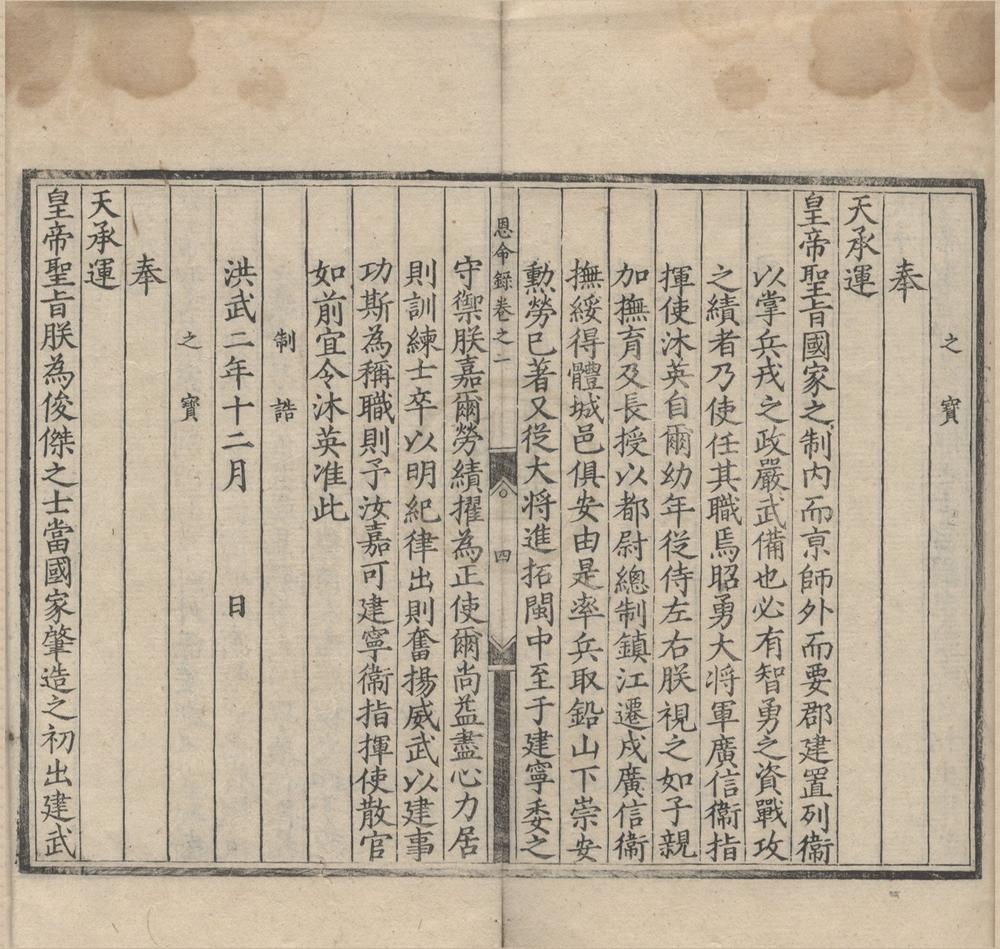 之寶
奉
天承運
皇帝聖旨國家之制内而亰師外而要郡建置列衞
以掌兵戎之政嚴武備也必有智勇之資戰攻
之績者乃使任其職焉昭勇大將軍廣信衞指
揮使沐英自爾幼年從侍左右朕視之如子親
加撫育及長授以都尉總制鎮江遷戍廣信衞
撫綏得體城邑俱安由是率兵取鉛山下崇安
勲勞已著又從大將進拓閩中至于建寧委之
恩命録卷之二
四
守禦朕嘉爾勞績擢為正使爾尚益盡心力居
則訓練士卒以明紀律出則奮揚威武以建事
功斯為稱職則予汝嘉可建寧衞指揮使散官
如前宜令沐英准此
制誥
洪武二年十二月 日
之寶
奉
天承運
皇帝聖旨朕為俊傑之士當國家肇造之初出建武